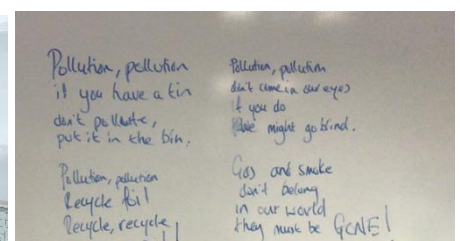 Pollution, pollution
if you have a tin
don't pollute,
put it in the bin.
Pollution, pollution
Recycle foil
Recycle, recycle
Pollution, pollution
don't come in our eyes
if you do
we might go blind.
Gas and smoke
don't belong
in our world
they must be GONE!